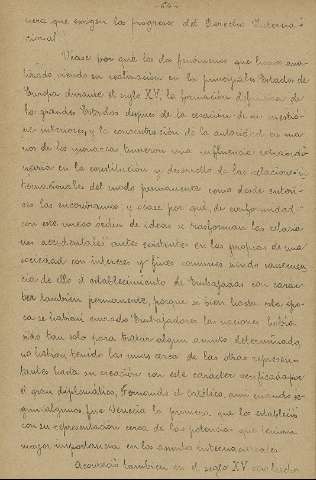 nera que exigen los progresos del Derecho Interna-
cional.
Véase por que los dos fenómenos que hemos ana-
lizado viendo su realización en los principales Estados de
Europa durante el siglo XV, la formación definitiva de
los grandes Estados despues de la cesación de sus
interiores y la concentración de la autoridad en ma-
nos de los monarcas tuvieron una influencia
en la constitución y desarrollo de las relaciones in-
ternacionales del modo permanente como desde enton-
ces las encontramos, y véase por qué, de conformidad
con este nuevo orden de ideas se trasforman las relacio-
nes accidentales antes existentes en las propias de una
sociedad con intereses y fines comunes siendo consecuen-
cia de ello el establecimiento de Embajadas con carac-
ter tambien permanente, porque si bien hasta esta épo-
ca se habian enviado Embajadores las naciones
sino tan solo para tratar algun asunto determinado,
no habian tenido las unas cerca de las otras represen-
tantes hasta su creación con este caracter verificada por
el gran diplomático, Fernando el Católico, aun cuando se-
gun algunos fue Venecia la primera que los estableció
con su representacion cerca de las potencias que tenian
mayor importancia en los asuntos internacionales.
tambien en el siglo XV